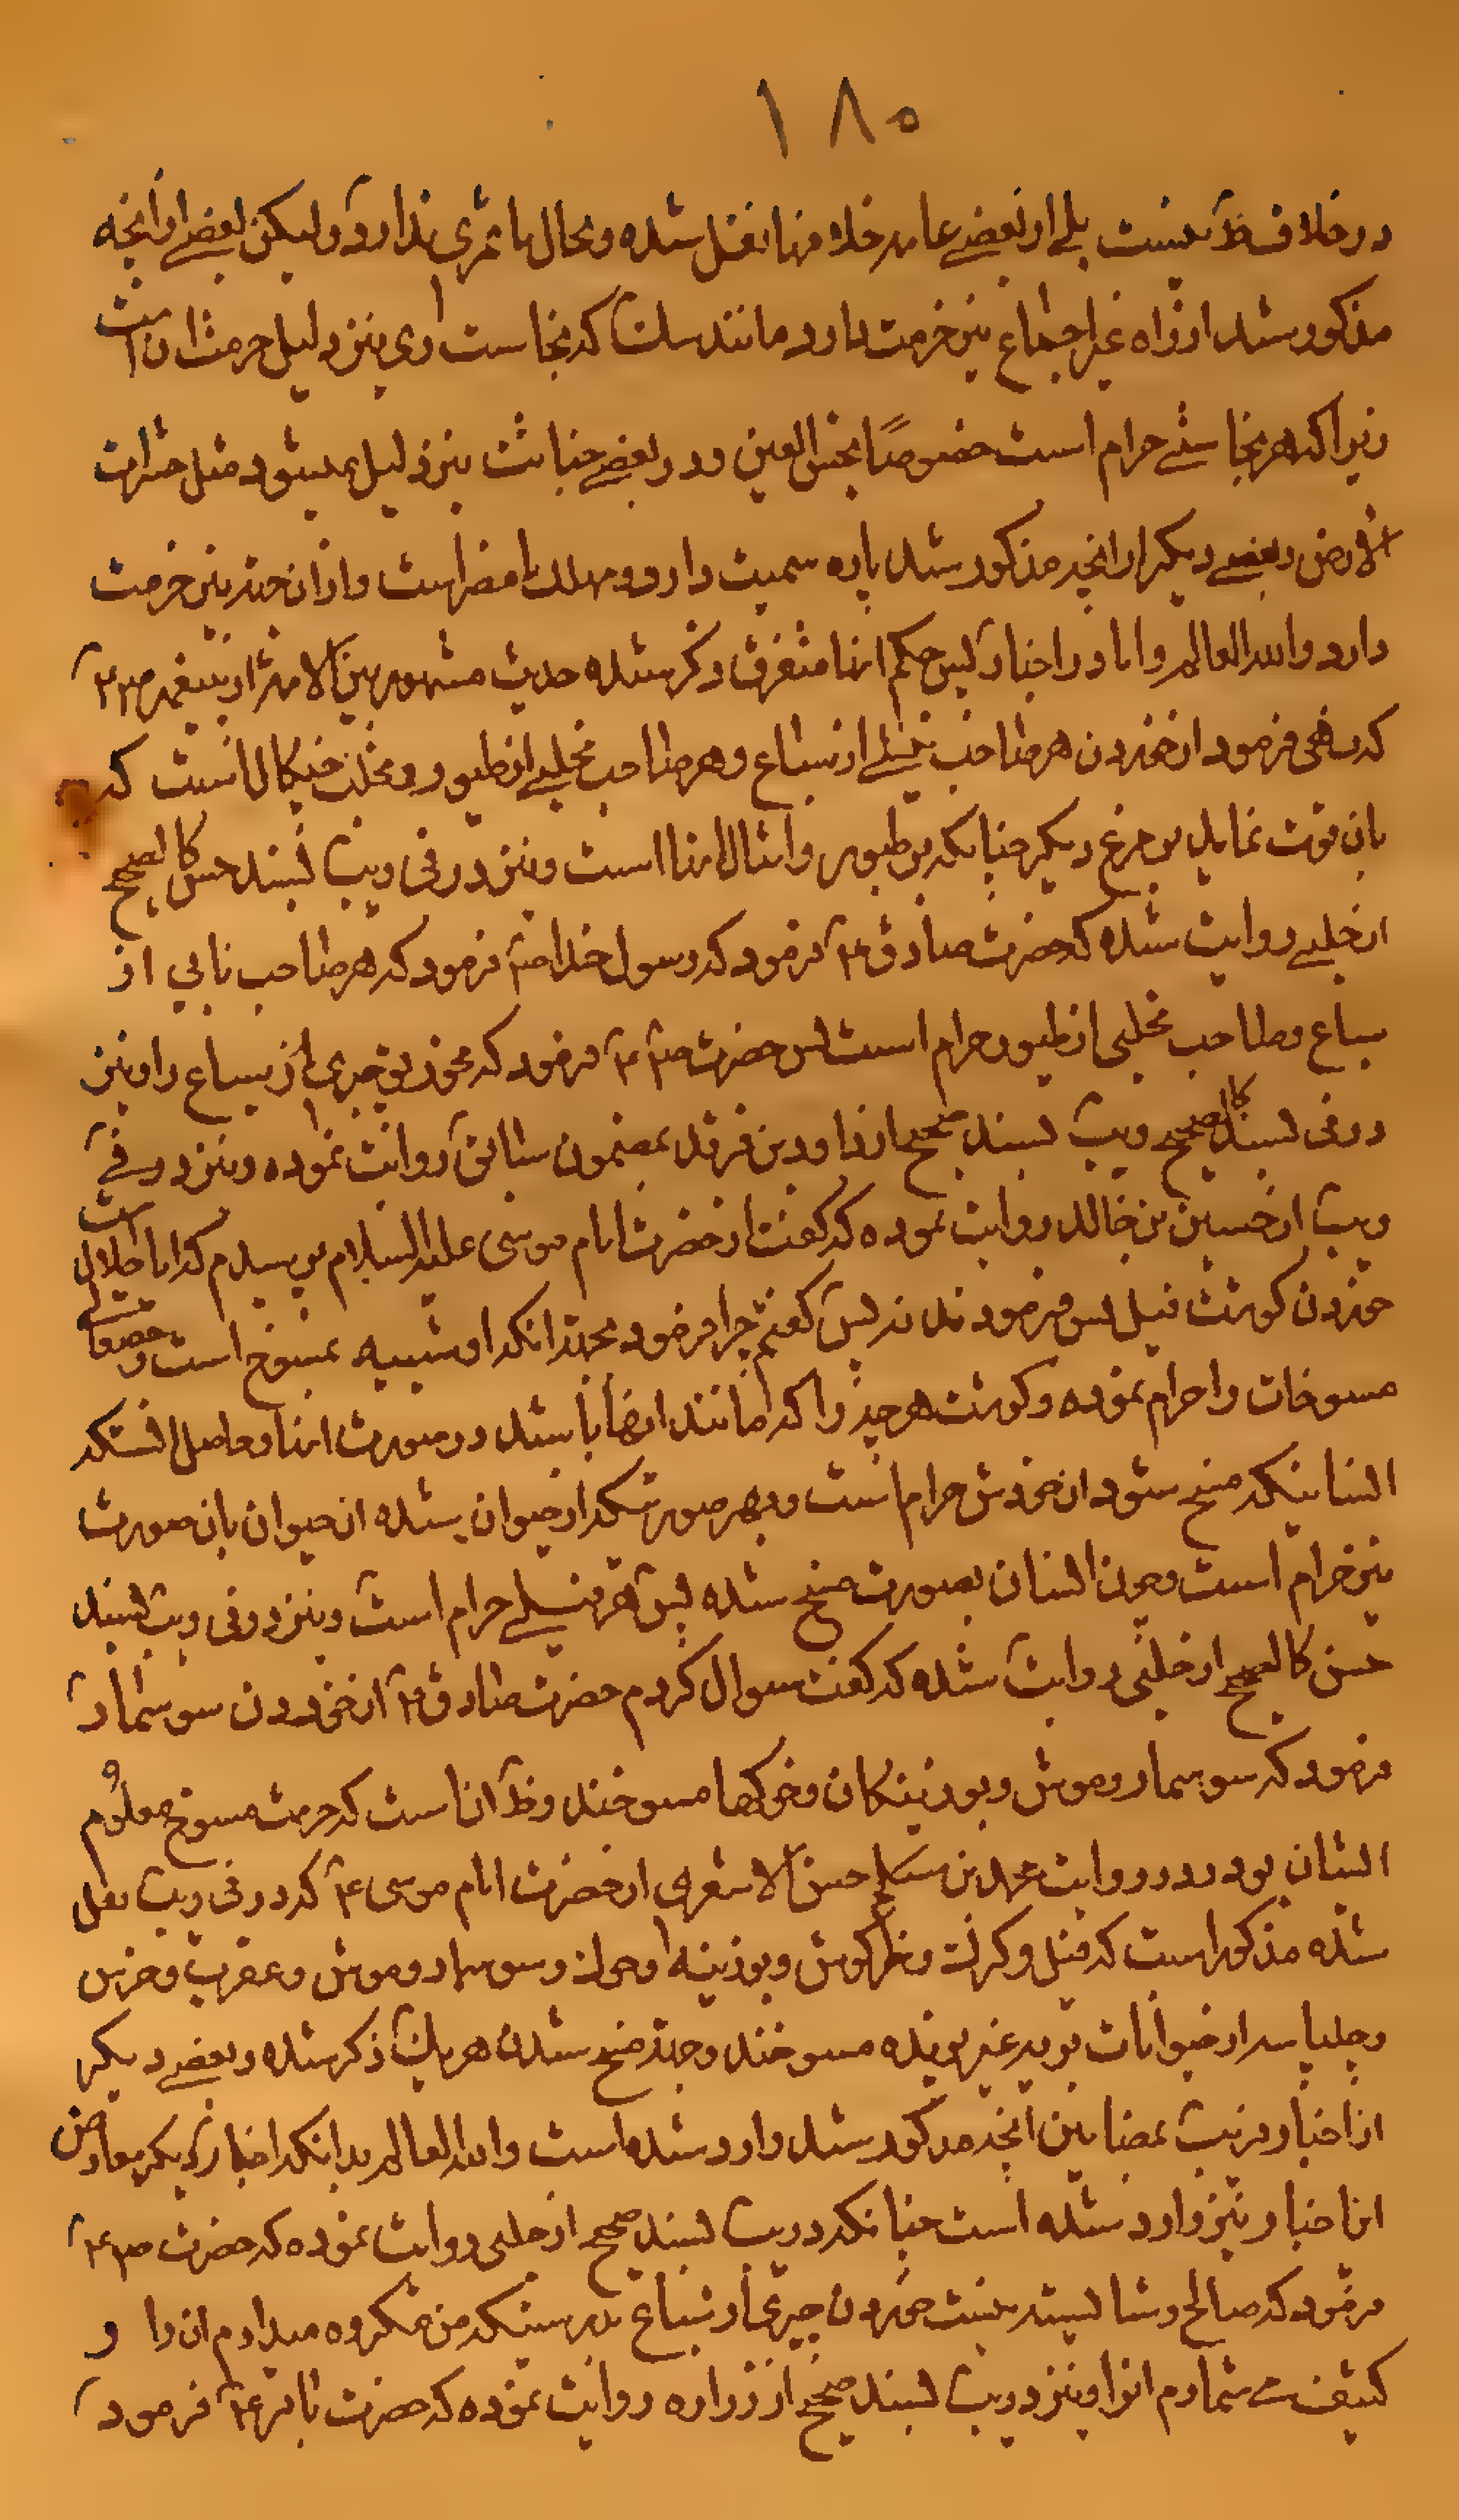 ۱۸۰
در خلاف ظ نیست بلی از بعضی عامه خلافها نقل شده و بحال ما ثمری ندارد و لیکن بعضی از آنچه
مذکور شد از راه غیر اجماع نیز حرمت دارد مانند سک که نجاست اری نیز دلیل حرمت ان است
زیرا که هر نجاستی حرام است خصوصًا نجس العین و در بعضی خباثت نیز دلیل میشود مثل حشرات
الارض و بعضی دیکر از آنچه مذکور شد پاره سمیت دارد و مهلک یا مضر است و از ان جهة نیز حرمت
دارد و الله العالم و اما در اخبار پس حکم اینها متفرق ذکر شده حدیث مشهور بین الامة از پیغمبر ص
که نهی فرمود از خوردن هر صاحب نیشی از سباع و هر صاحب مخلبی از طیور و مخلب چنکال است که
بان قوت نماید بر مرغ دیکر چنانکه در طیور و امثال اینها است و نیز در فی ویب بسند حسن کالصحیح
از حلبی روایت شده که حضرت صادق ع فرمود که رسول خدا ص فرمود که هر صاحب نابی از
سباع و صاحب مخلبی از طیور حرام است پس حضرت فرمود که مخور چیزی از سباع را و نیز
در فی بسند کالصحیح ویب بسند صحیح از داود بن فرقد بمضمون سابق روایت نموده و نیز در فی
ویب از حسین بن خالد روایت نموده که کفت از حضرت امام موسی علیه السلام پرسیدم که ایا حلال است
خوردن کوشت فیل پس فرمودند نه پس کفتم چرا فرمود بجهة انکه او شبیه بمسوخ است و حقتعالی
مسوخات را حرام نموده و کوشت هر چیز را که مانند انها باشد در صورت اینها و حاصل انستکه
انسانیکه مسخ شود ان خودش حرام است و بهر صورتیکه از حیوان شده ان حیوان بان صورت
نیز حرام است و چون انسان بصورت مسخ شده پس هر فیلی حرام است و نیز در فی ویب بسند
حسن کالصحیح از حلبی روایت شده که کفت سوال کردم حضرت صادق ع از خوردن سوسمار
فرمود که سوسمار و موش و بوزینکان و خوکها مسوخند و ظ ان است که حرمت مسوخ معلوم
ایشان بوده و در روایت محمد بن حسن الاشعری از حضرت امام موسی ع که در فی ویب نقل
شده مذکور است که فیل و کرک و خرکوش و بوزینه و خوک و سوسمار و موش و عقرب و خرس
و چلپاسه از حیوانات مسوخند و جهة مسخ شدن هر یک ذکر شده و بعضی دیکر
از اخبار قریب بمضامین آنچه مذکور شد وارد شده است و الله العالم بدانکه اخبار دیکر معارض
این اخبار نیز وارد شده است چنانکه در یب بسند صحیح از حلبی روایت نموده که حضرت ص ع
فرمود که صالح و شایسته نیست خوردن چیزی از سباع بدرستیکه من مکروه میدارم ان را و
کثیف می شمارم انرا و نیز در یب بسند صحیح از زراره روایت نموده که حضرت باقر ع فرمود